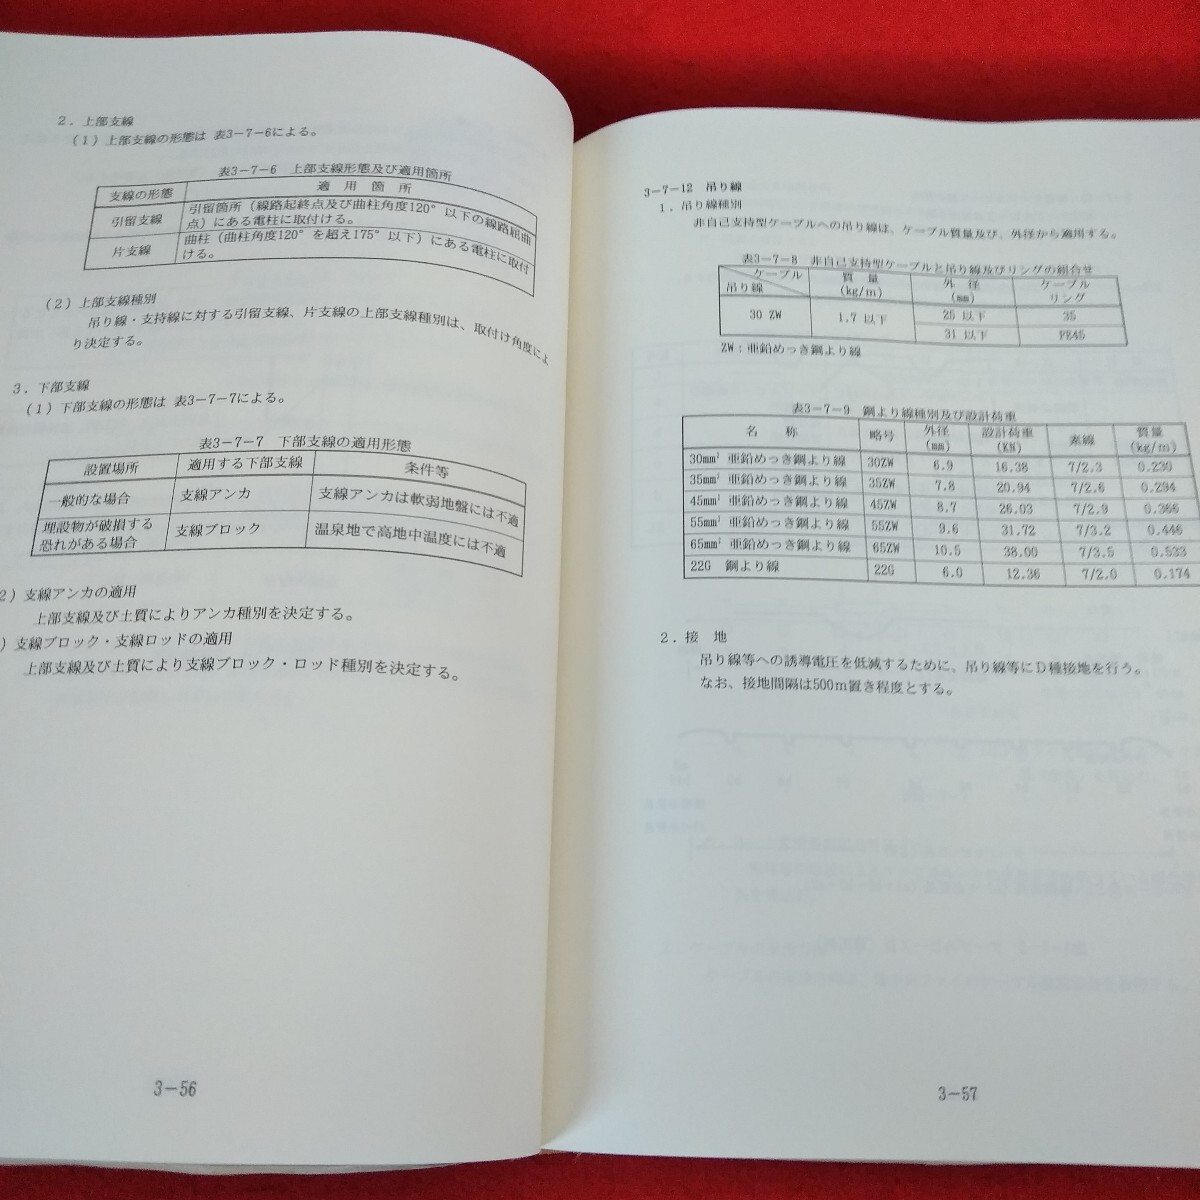 2．上部支線
(1) 上部支線の形態は 表3－7－6による。
表3－7－6　上部支線形態及び適用箇所
支線の形態　適　用　箇　所
引留支線　引留箇所（線路起終点及び曲柱角度120°以下の線路屈曲
点）にある電柱に取付ける。
片支線　曲柱（曲柱角度120°を超え175°以下）にある電柱に取付
ける。
(2) 上部支線種別
吊り線・支持線に対する引留支線、片支線の上部支線種別は、取付け角度によ
り決定する。
3．下部支線
(1) 下部支線の形態は 表3－7－7による。
表3－7－7　下部支線の適用形態
設置場所　適用する下部支線　条件等
一般的な場合　支線アンカ　支線アンカは軟弱地盤には不適
埋設物が破損する
恐れがある場合　支線ブロック　温泉地で高地中温度には不適
2) 支線アンカの適用
上部支線及び土質によりアンカ種別を決定する。
) 支線ブロック・支線ロッドの適用
上部支線及び土質により支線ブロック・ロッド種別を決定する。
3－56
3－7－12　吊り線
1．吊り線種別
非自己支持型ケーブルへの吊り線は、ケーブル質量及び、外径から適用する。
表3－7－8　非自己支持型ケーブルと吊り線及びリングの組合せ
ケーブル　質　量　外　径　ケーブル
吊り線　(kg/m)　(mm)　リング
30 ZW　1.7 以下　25 以下　35
31 以下　PE45
ZW：亜鉛めっき鋼より線
表3－7－9　鋼より線種別及び設計荷重
名　称　略号　外径(mm)　設計荷重(KN)　素線　質量(kg/m)
30mm² 亜鉛めっき鋼より線　30ZW　6.9　16.38　7/2.3　0.230
35mm² 亜鉛めっき鋼より線　35ZW　7.8　20.94　7/2.6　0.294
45mm² 亜鉛めっき鋼より線　45ZW　8.7　26.03　7/2.9　0.366
55mm² 亜鉛めっき鋼より線　55ZW　9.6　31.72　7/3.2　0.446
65mm² 亜鉛めっき鋼より線　65ZW　10.5　38.00　7/3.5　0.533
22G　鋼より線　22G　6.0　12.36　7/2.0　0.174
2．接　地
吊り線等への誘導電圧を低減するために、吊り線等にD種接地を行う。
なお、接地間隔は500m置き程度とする。
3－57